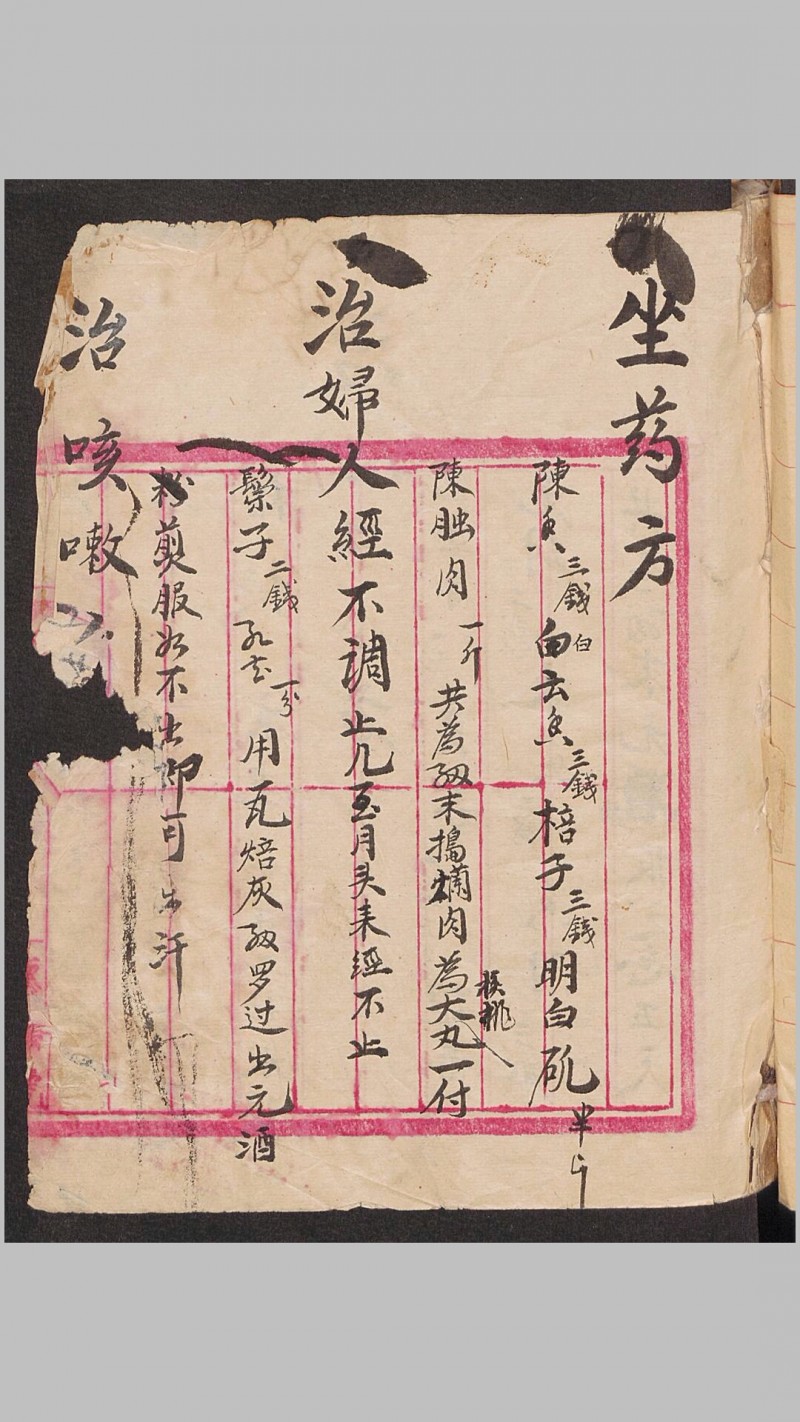 坐药方
陳香三錢白云香三錢棓子三錢明白矾半斤
陳肉一斤共為細末搗爛肉為大丸一付
核桃
治婦人經不調止几至月头来經不止
子二錢一分用瓦焙灰細罗过出元酒
煎服如不出即可出汗
治咳嗽